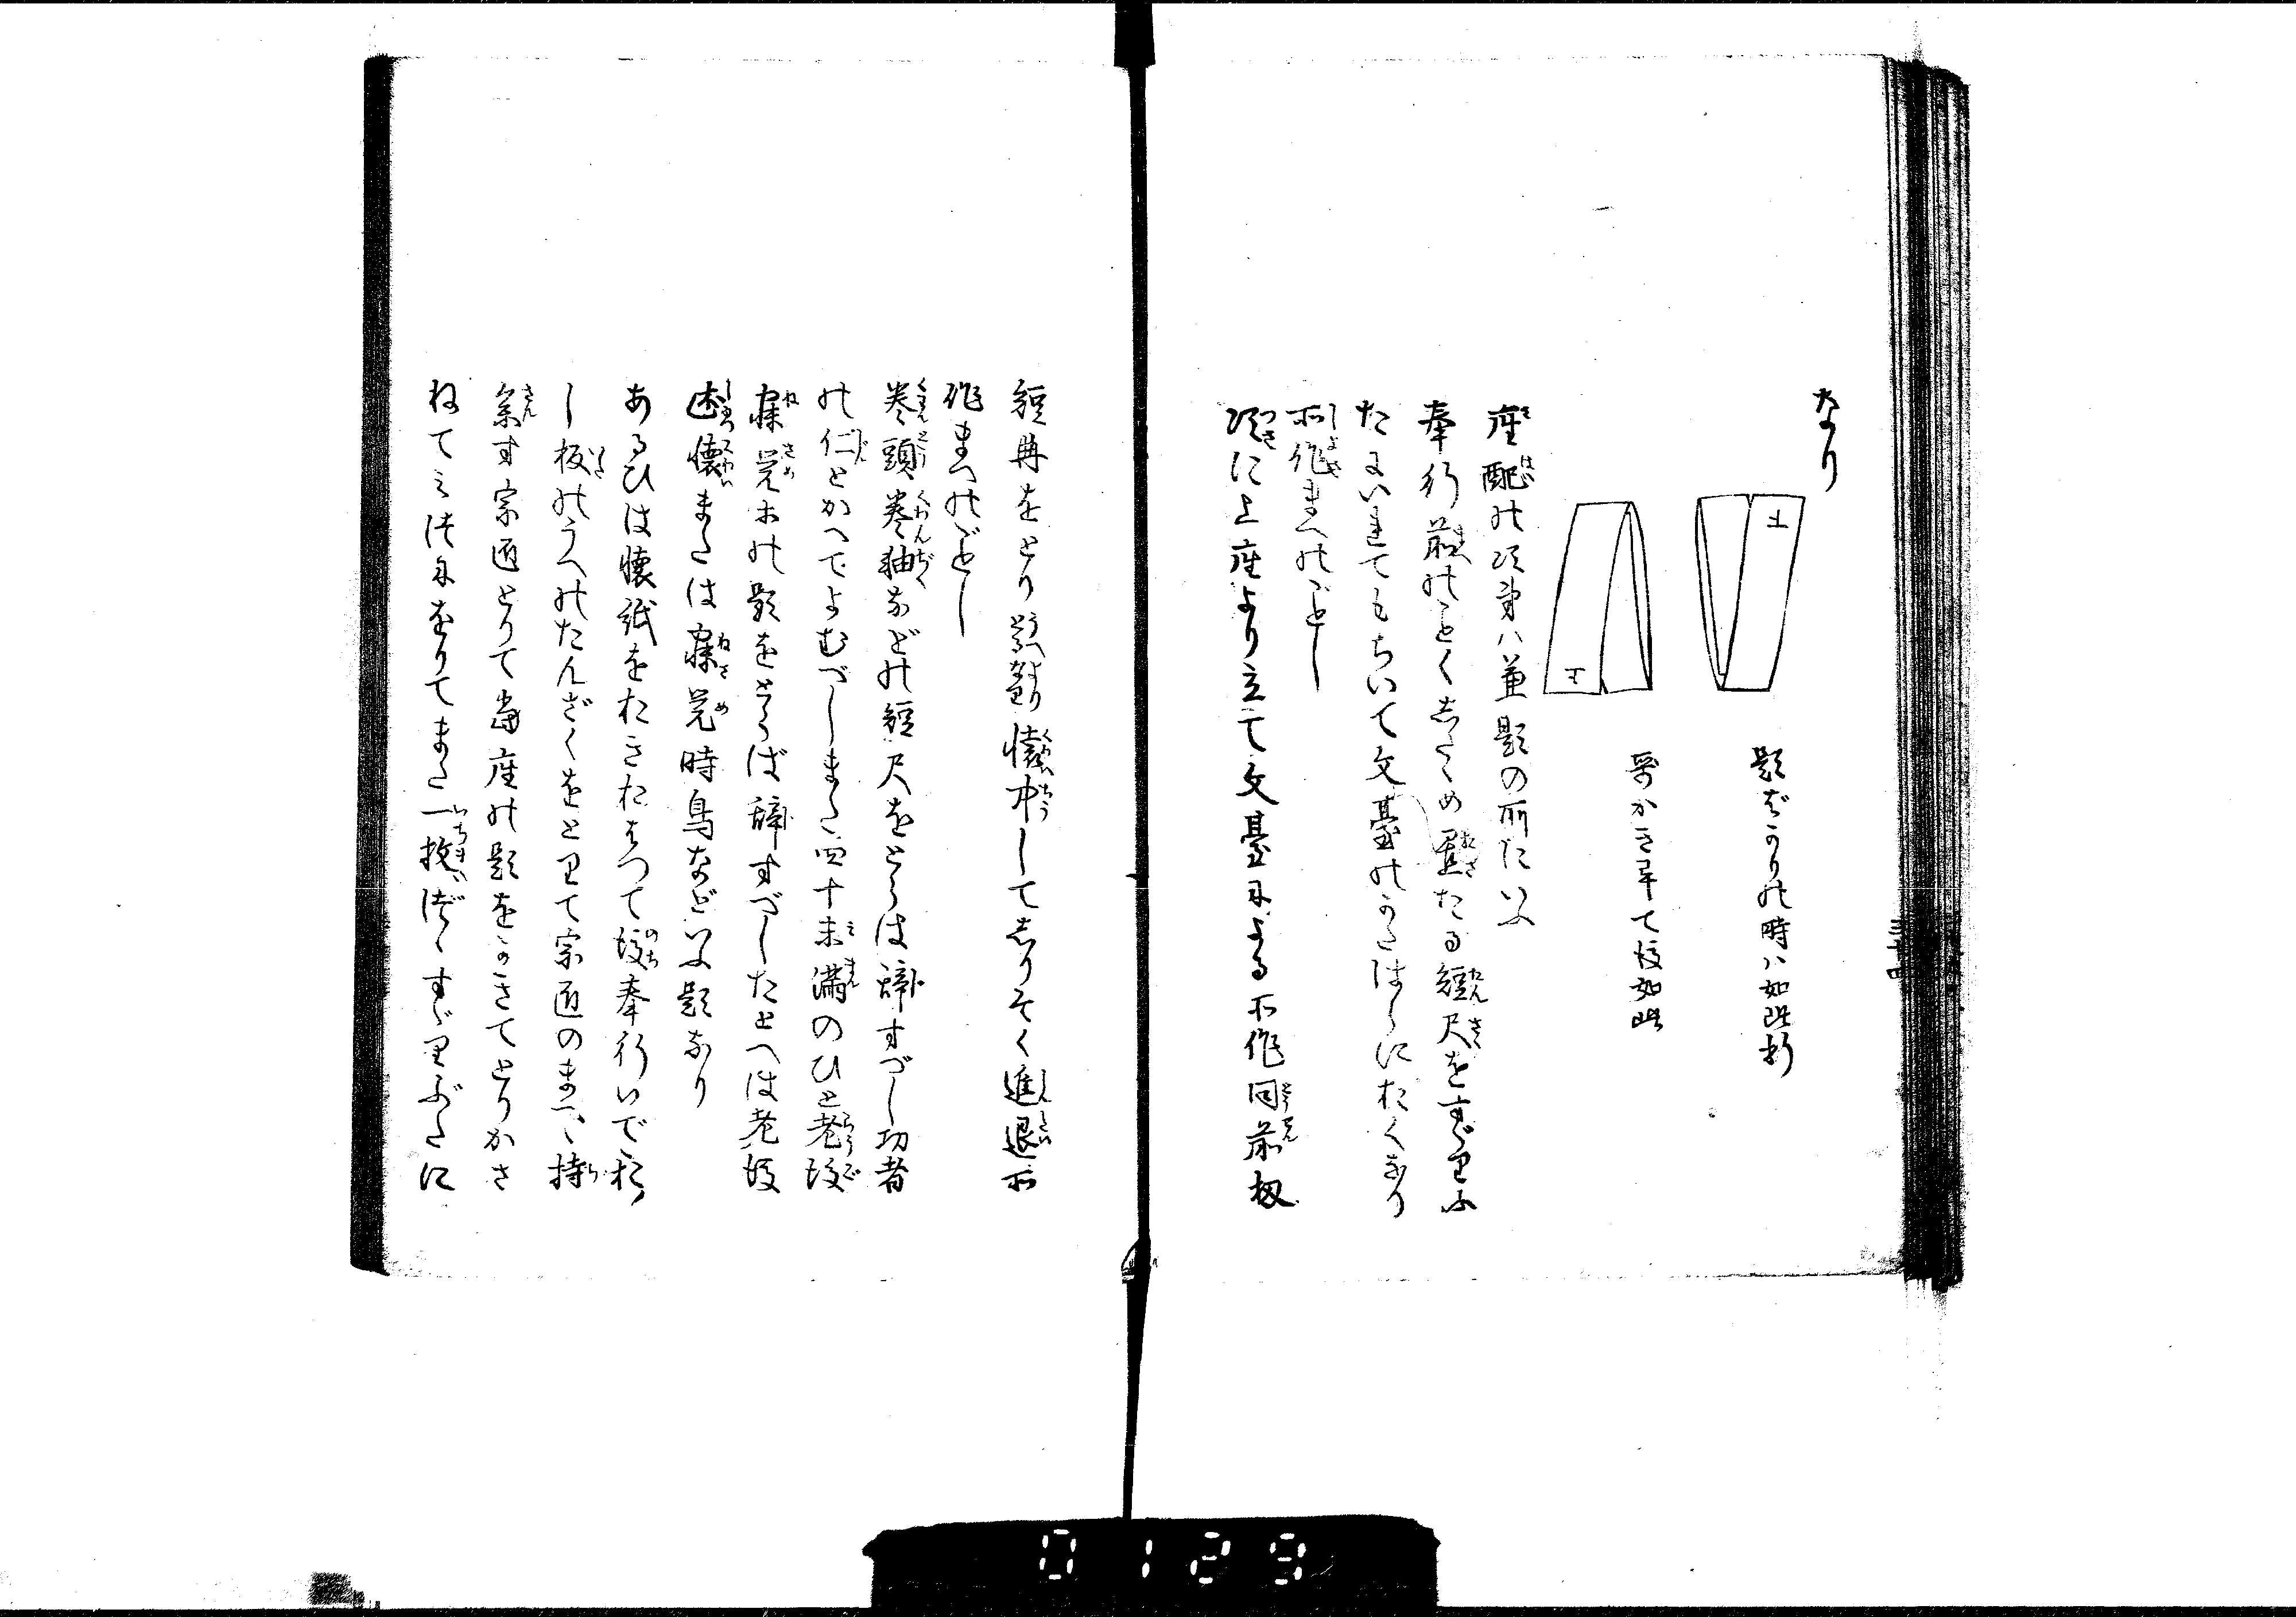 なり
上
題ばかりの時ハ如此折
上
哥かき畢て後如此
座配の次第ハ兼題の所にいふ
奉行前のことくしたゝめ置たる短尺をすゞりふ
たにいれてもちいて文臺のかたはらにおくなり
所作まへのごとし
次に上座より立て文臺による所作同前扨
短冊をとり 懐中してしりぞく進退所
作まへのごとし
巻頭巻軸などの短尺をとらは辞すべし功者
の仁とかへてよむべしまた四十未満のひと老後
寐覚等の題をとらば辞すべしたとへは老後
述懐または寐覚時鳥などいふ題なり
あるひは懐紙をおきおはつて後奉行いで
し板のうへのたんざくをとりて宗匠のまへゝ持
参す宗匠とりて当座の題をかきてとりかさ
ねてみつにをりてまた一枚づゝすゞりぶたに
三十四
0129